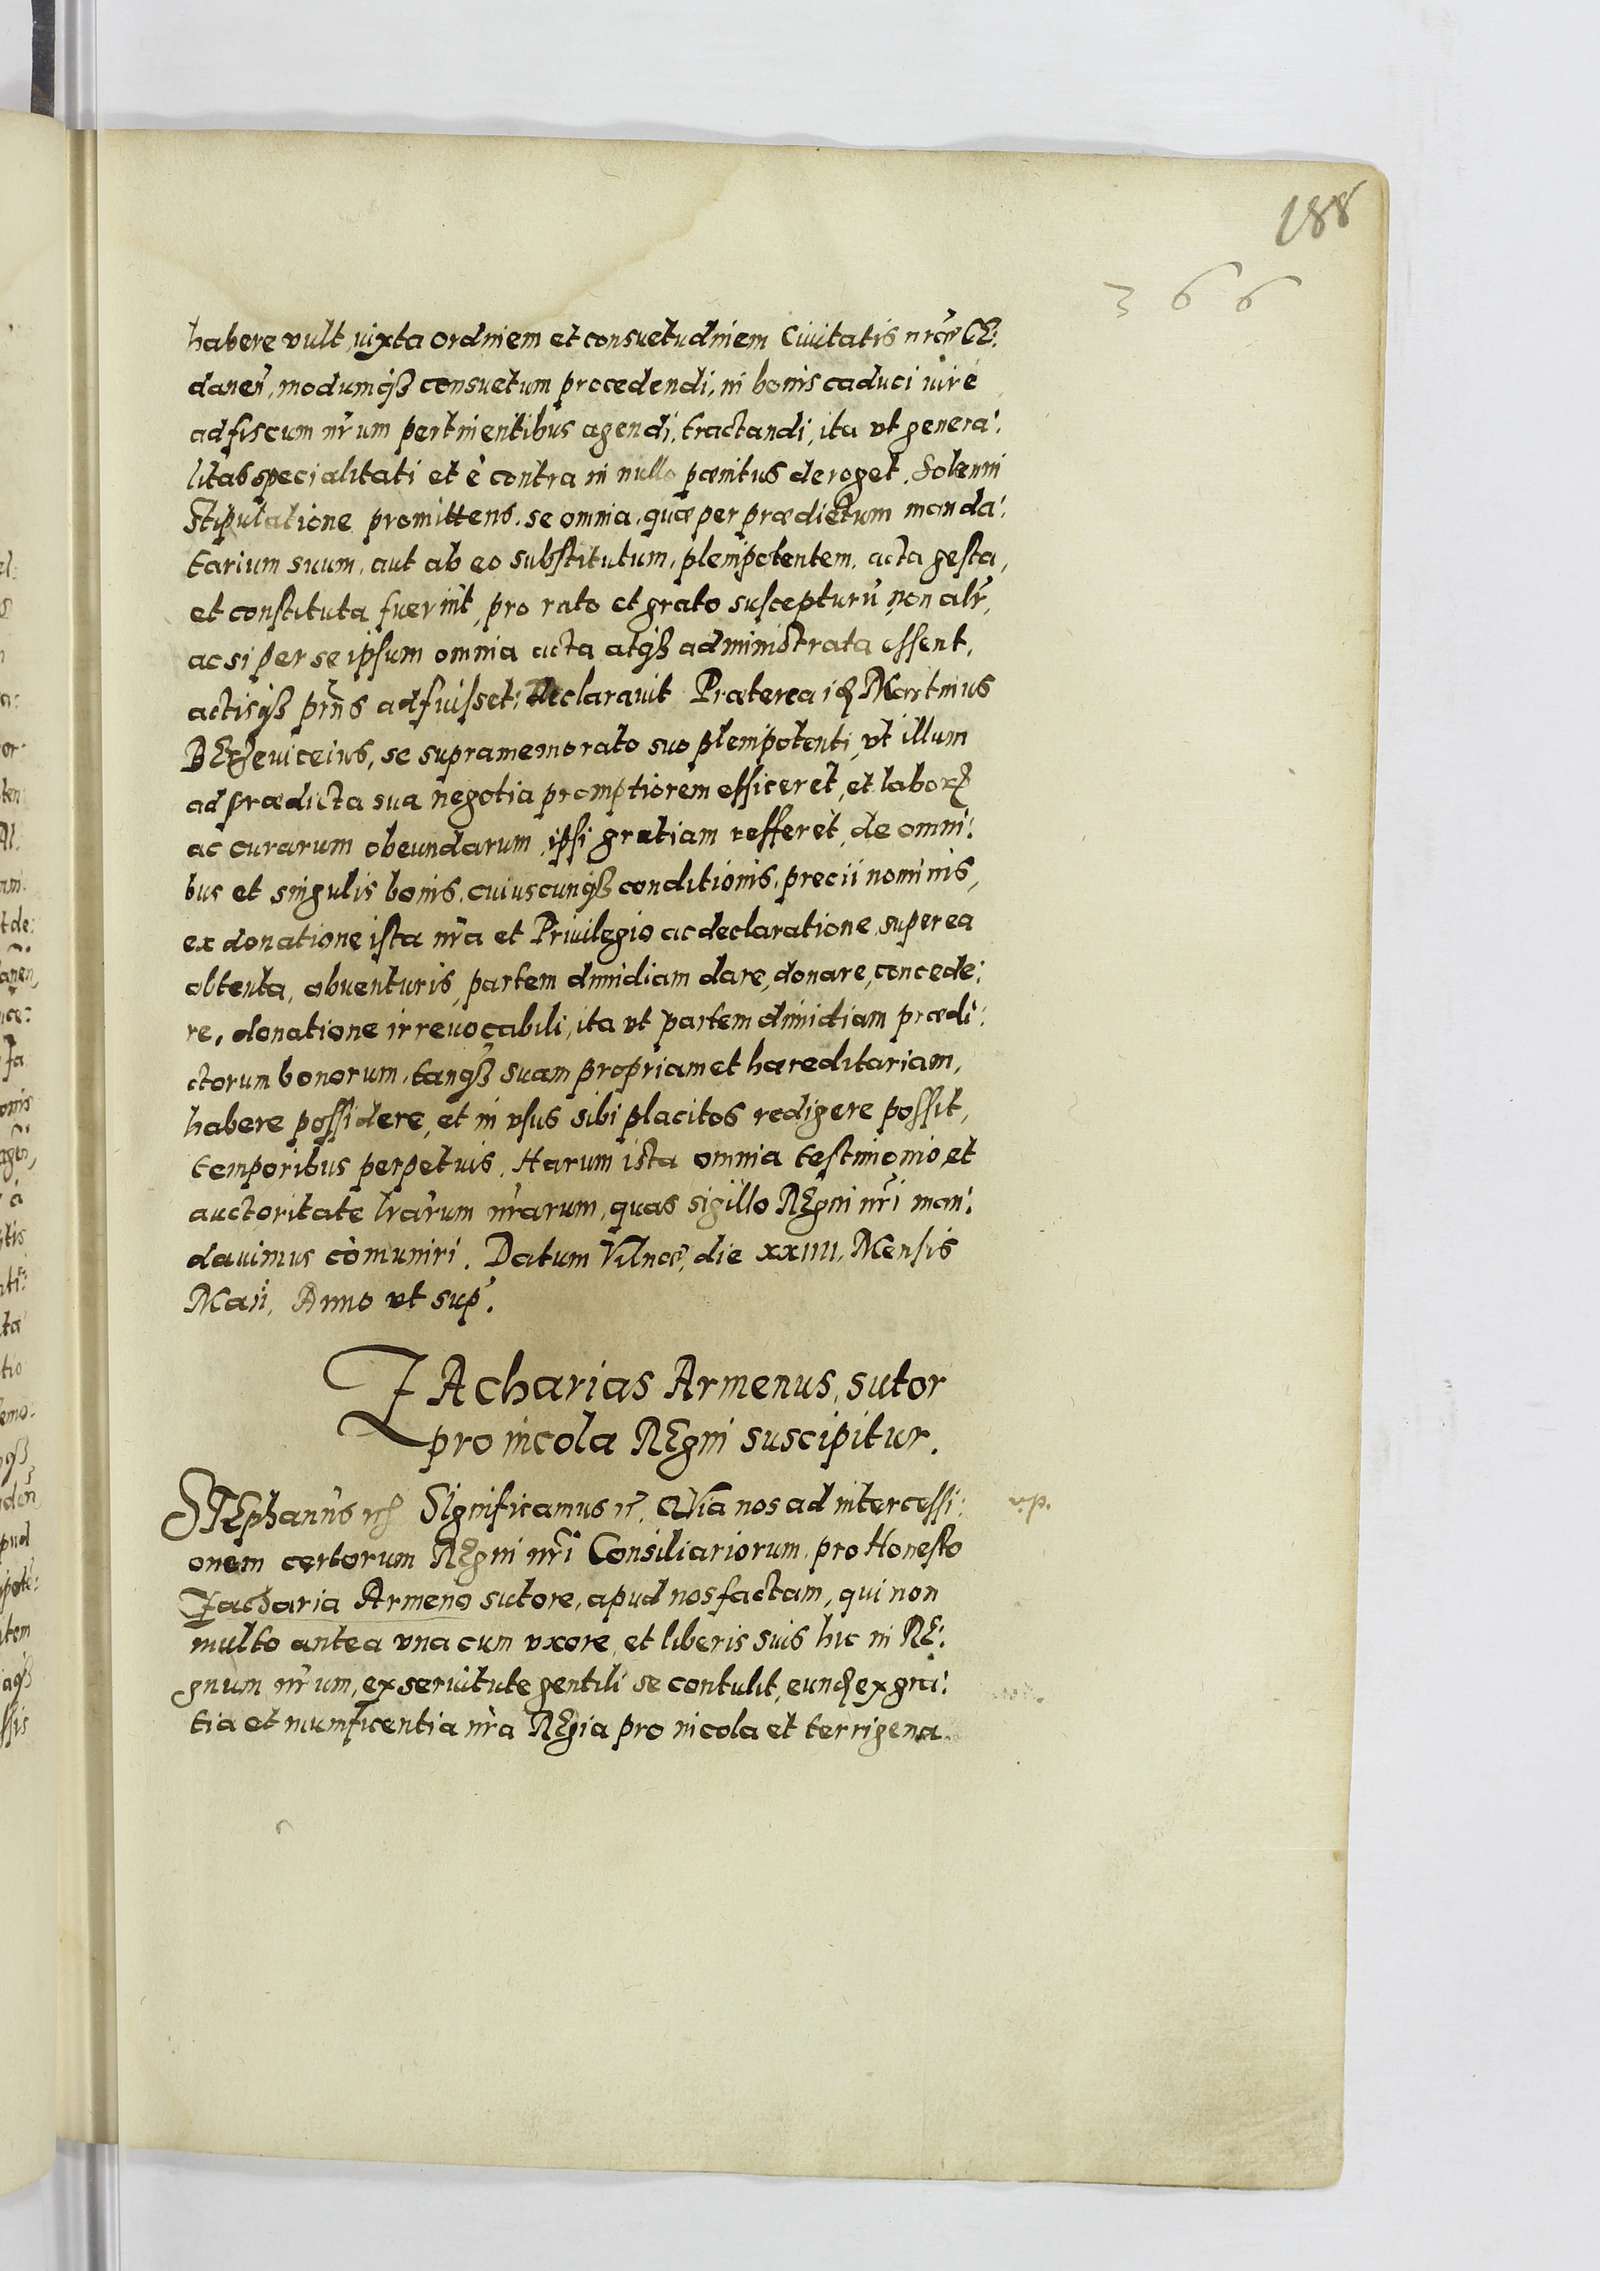 188
366
habere vult, iuxta ordinem et consuetudinem Ciuitatis nrãe GE:
daneñ, modumq3 consuetum procedendi, in bonis caduci iure
ad fiscum nr̃um pertinentibus agendi, tractandi, ita vt genera:
litas specialitati et è contra in nullo pænitus deroget. Solenni
stipulatione promittens, se omnia, quæ per prædictum manda:
tarium suum, aut ab eo substitutum, plenipotentem, acta gesta,
et constituta fuerint, pro rato et grato suscepturũ, non alr̃,
ac si per se ipsum omnia acta atq3 administrata essent,
actisq3 prñs adfuisset: declarauit. Præterea id Martinus
BErzeuiceius, se supramemorato suo plenipotenti, vt illum
ad prædicta sua negotia promptiorem efficeret, et labor
ac curarum obeundarum, ipsi gratiam refferet, de omni:
bus et singulis bonis, cuiuscunq3 conditionis, precii nominis,
ex donatione ista nr̃a et Priuilegio ac declaratione super ea
obtenta, obuenturis, partem dimidiam dare, donare, concede:
re, donatione irreuocabili, ita vt partem dimidiam prædi:
ctorum bonorum, tanq3 suam propriam et hæreditariam,
habere possidere, et in vsus sibi placitos redigere possit,
temporibus perpetuis. Harum ista omnia testimonio et
auctoritate lr̃arum nr̃arum, quas sigillo REgni nr̃i man:
dauimus cõmuniri. Datum Vilnæ, die xxiiii. Mensis
Maii, Anno vt sup̃.
ZAcharias Armenus, sutor
pro incola REgni suscipitur.
STEphanus rc̃ Significamus rc̃. QVia nos ad intercessi:
v.p.
onem certorum REgni nr̃i Consiliariorum, pro Honesto
Zacharia Armeno sutore, apud nos factam, qui non
multo antea vna cum vxore, et liberis suis hic in RE:
gnum nr̃um, ex seruitute gentili se contulit, eund ex gra:
tia et munificentia nr̃a REgia pro incola et terrigena